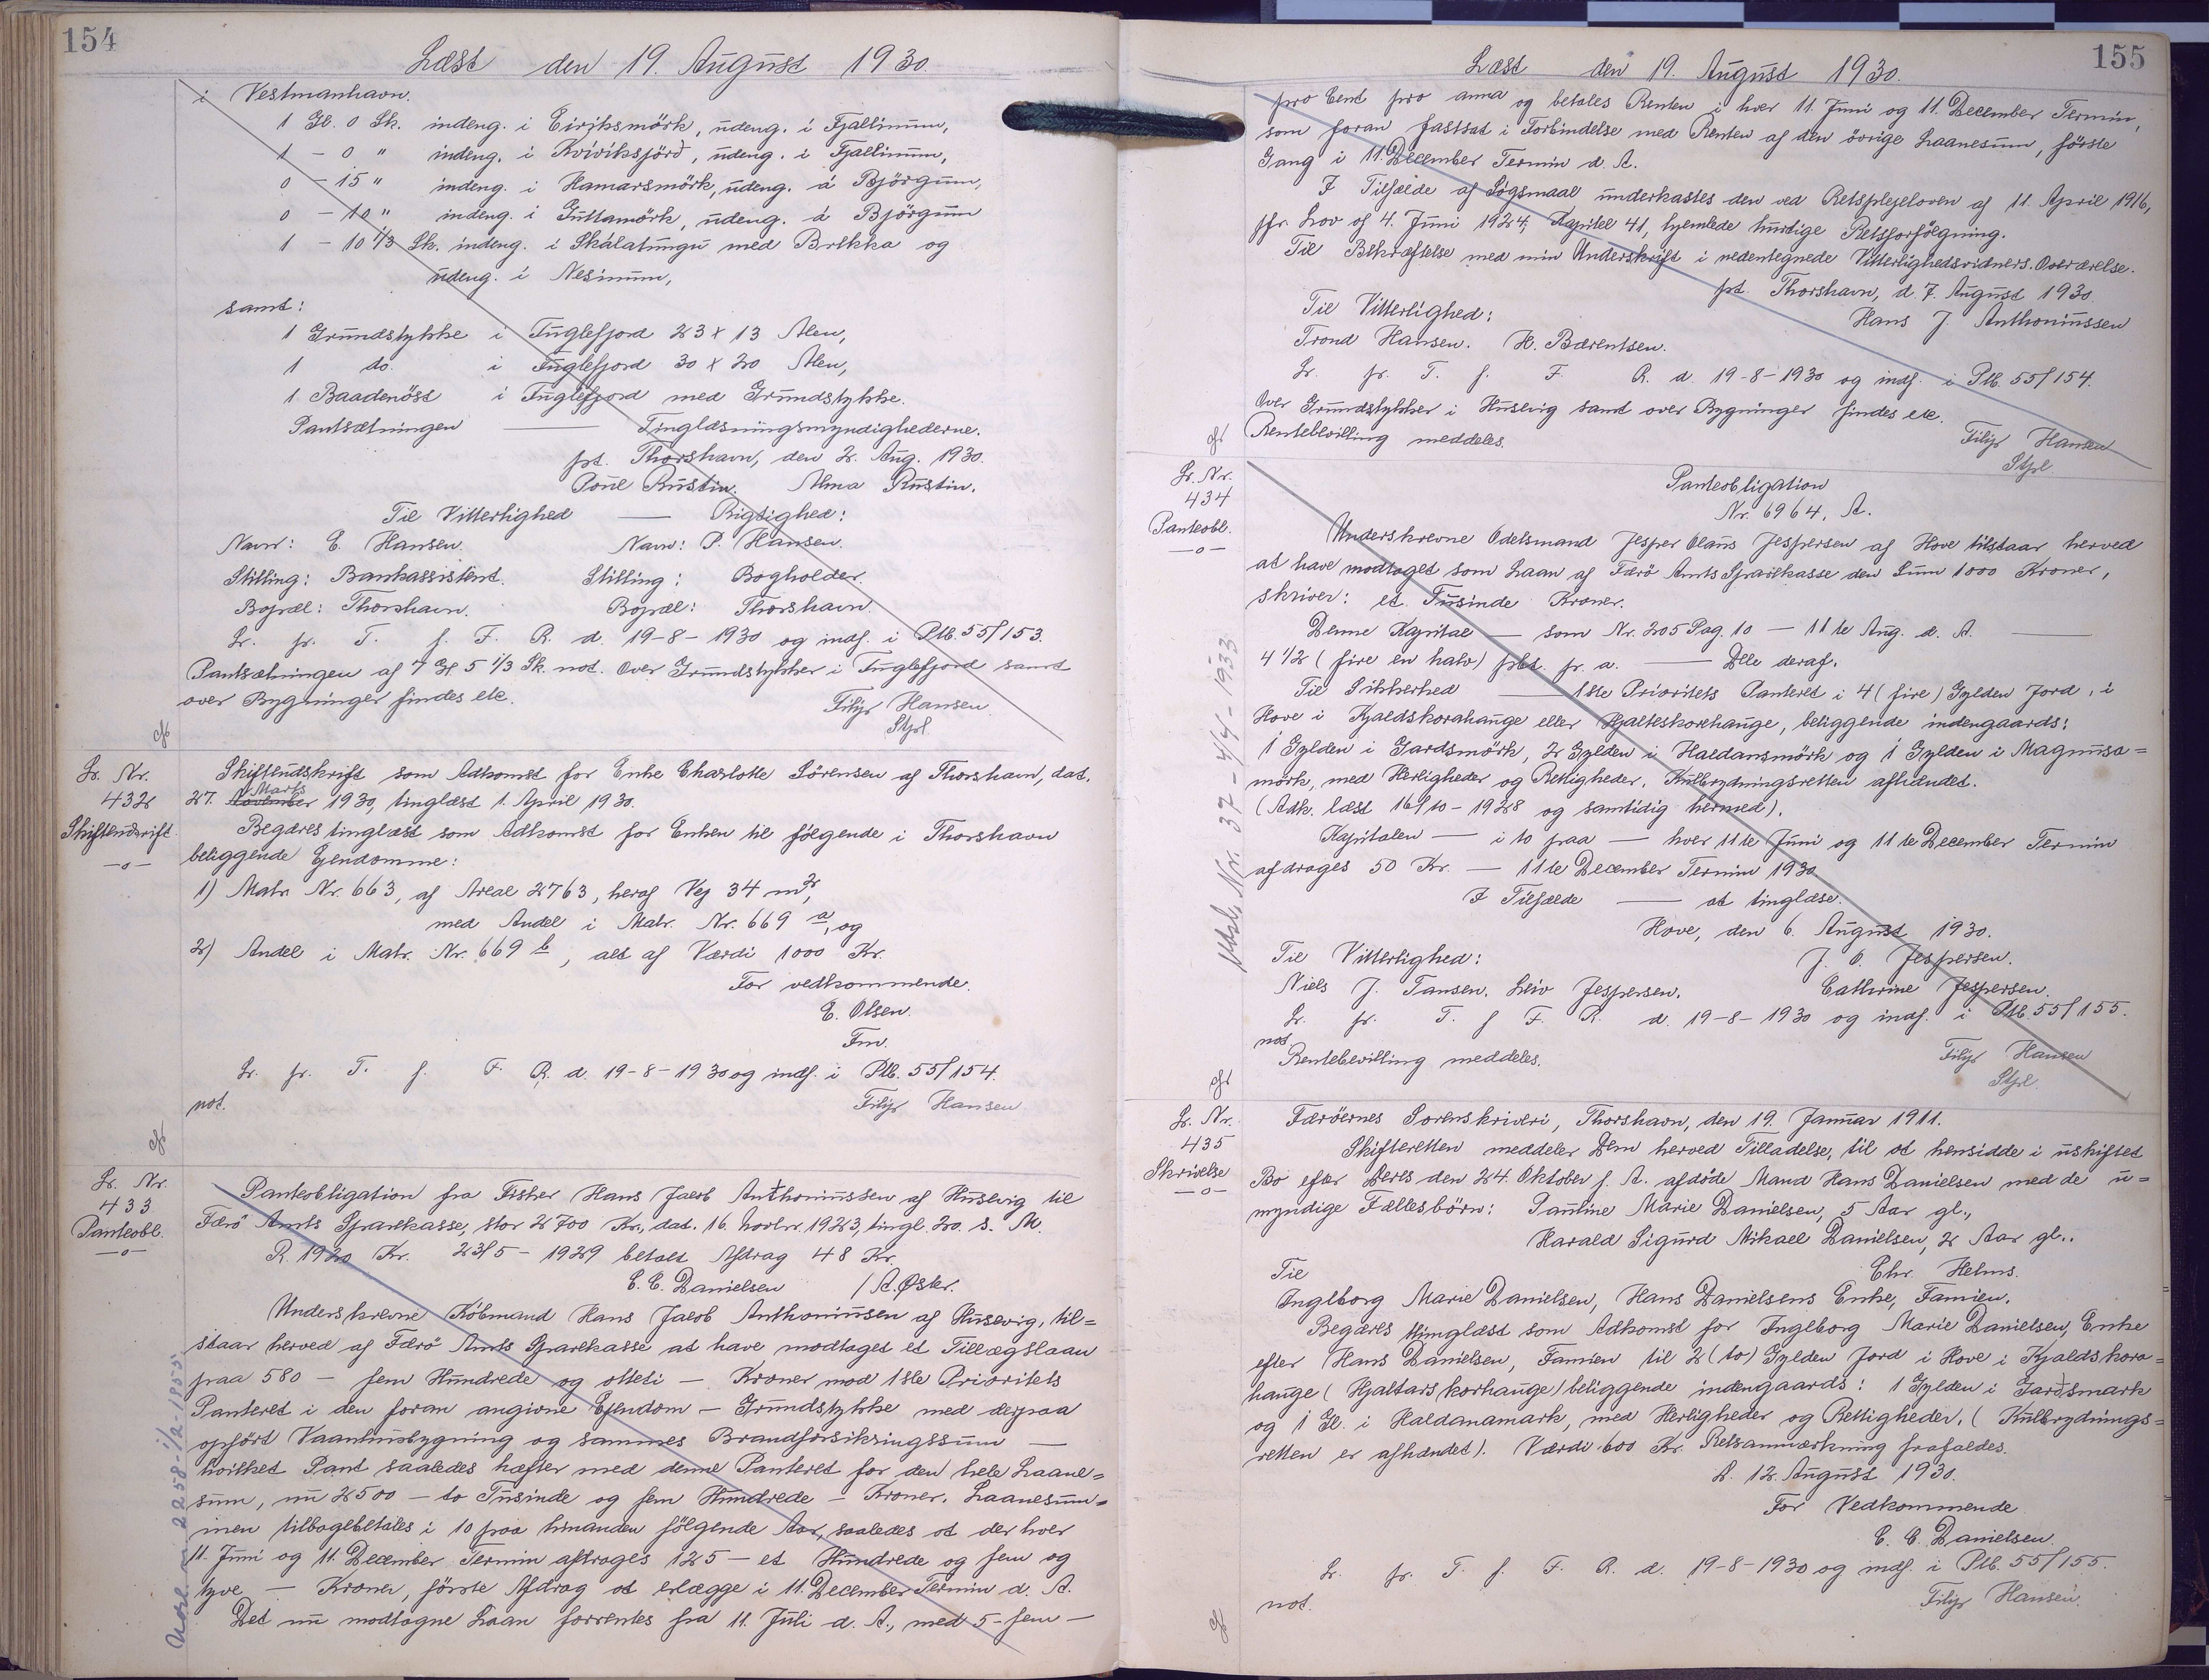 154
Læst den 19. August 1930.
i Vestmanhavn.
1 Gl. 0 Sk. indeng. i Eirjksmörk, udeng. i Fjallinum,
1 - 0 " indeng. i Kvivíksjörð, udeng. i Fjallinum,
0 - 15 " indeng. i Hamarsmörk, udeng. á Björgum,
0 - 10 " indeng. i Guttamörk, udeng. á Björgum
1 - 10 1/3 Sk. indeng. i Skálatungu með Brekka og
udeng. i Nesinum,
samt:
1 Grundstykke i Fuglefjord 23 x 13 Alen,
1 do. i Fuglefjord 30 x 20 Alen,
1 Baadenöst i Fuglefjord med Grundstykke.
Pantsætningen — Tinglæsningsmyndighederne.
pt. Thorshavn, den 2. Aug. 1930.
Poul Rustin. Alma Rustin.
Til Vitterlighed — Rigtighed:
Navn: E. Hansen. Navn: P. Hansen.
Stilling: Bankassistent. Stilling: Bogholder.
Bopæl: Thorshavn. Bopæl: Thorshavn.
Lr. fr. T. f. F. R. d. 19-8-1930 og indf. i Ptb. 55/153.
Pantsætningen af 7 Gl 5 1/3 Sk. not. Over Grundstykker i Fuglefjord samt
over Bygninger findes ete.
Filip Hansen
Stfl
Lr. Nr.
432
Skifteudskrift
—o—
Skifteudskrift som Adkomst for Enke Charlotte Sörensen af Thorshavn, dat.
27. November Marts 1930, tinglæst 1. April 1930.
Begæres tinglæst som Adkomst for Enken til fölgende i Thorshavn
beliggende Ejendomme:
1) Matr. Nr. 663, af Areal 2763, heraf Vej 34 m²,
med Andel i Matr. Nr. 669 a, og
2) Andel i Matr. Nr. 669 b, alt af Værdi 1000 Kr.
For vedkommende.
E. Olsen.
Fm.
Lr. fr. T. f. F. R. d. 19-8-1930 og indf. i Ptb. 55/154.
not.
Filip Hansen
Lr. Nr.
433
Panteobl.
—o—
Panteobligation fra Fisker Hans Jacob Anthoniussen af Husevig til
Færö Amts Sparekasse, stor 2700 Kr., dat. 16. Novbr. 1923, tingl. 20. s. M.
R. 1920 Kr. 23/5-1929 betalt Afdrag 48 Kr.
E. C. Danielsen / A. Øster.
Underskrevne Köbmand Hans Jacob Anthoniussen af Husevig, til=
staar herved af Færö Amts Sparekasse at have modtaget et Tillægslaan
paa 580 — fem Hundrede og otteti — Kroner mod 1ste Prioritets
Panteret i den foran angivne Ejendom — Grundstykke med derpaa
opfört Vaanhusbygning og sammes Brandforsikringssum —
hvilket Pant saaledes hæfter med denne Panteret for den hele Laane=
sum, nu 2500 — to Tusinde og fem Hundrede — Kroner. Laanesum=
men tilbagebetales i 10 paa hinanden fölgende Aar, saaledes at der hver
11. Juni og 11. December Termin afdrages 125 — et Hundrede og fem og
tyve — Kroner, förste Afdrag at erlægge i 11. December Termin d. A.
Det nu modtagne Laan forrentes fra 11. Juli d. A., med 5 — fem —
155
Læst den 19. August 1930.
pro Cent pro anna og betales Renten i hver 11. Juni og 11. December Termin,
som foran fastsat i Forbindelse med Renten af den övrige Laanesum, förste
Gang i 11. December Termin d. A.
I Tilfælde af Sögsmaal underkastes den ved Retsplejeloven af 11. April 1916,
jfr. Lov af 4. Juni 1924, Kapitel 41, hjemlede hurtige Retsforfölgning.
Til Bekræftelse med min Underskrift i nedentegnede Vitterlighedsvidners Overværelse.
pt. Thorshavn, d. 7. August 1930.
Til Vitterlighed:
Hans J. Anthoniussen
Trond Hansen. H. Bærentsen.
Lr. fr. T. f. F. R. d. 19-8-1930 og indf. i Ptb. 55/154.
Over Grundstykker i Husevig samt over Bygninger findes ete.
Rentebevilling meddeles.
Filip Hansen
Stfl.
Lr. Nr.
434
Panteobl.
—o—
Panteobligation
Nr. 6964, A.
Underskrevne Odelsmand Jesper Olaus Jespersen af Hove tilstaar herved
at have modtaget som Laan af Færö Amts Sparekasse den Sum 1000 Kroner,
skriver: et Tusinde Kroner.
Denne Kapital — som Nr. 205 Pag. 10 — 11te Aug. d. A. —
4 1/2 (fire en halv) pct. pr. a. — Dele deraf.
Til Sikkerhed — 1ste Prioritets Panteret i 4 (fire) Gylden Jord, i
Hove i Kjaldskorahauge eller Hjalteskorehauge, beliggende indengaards:
1 Gylden i Gardsmörk, 2 Gylden i Haldansmörk og 1 Gylden i Magnusa=
mörk, med Herligheder og Rettigheder, Kulbrydningsretten afhændet.
(Adk. læst 16/10-1928 og samtidig hermed).
Kapitalen — i to paa — hver 11te Juni og 11te December Termin
afdrages 50 Kr. — 11te December Termin 1930
I Tilfælde — at tinglæse.
Hove, den 6. August 1930.
Til Vitterlighed:
J. O. Jespersen.
Niels J. Jansen. Leiv Jespersen.
Cathrine Jespersen.
Lr. fr. T. f F. R. d. 19-8-1930 og indf. i Ptb. 55/155.
not
Rentebevilling meddeles.
Filip Hansen
Stfl.
Lr. Nr.
435
Skrivelse
—o—
Færöernes Sorenskriveri, Thorshavn, den 19. Januar 1911.
Skifteretten meddeler Dem herved Tilladelse, til at hensidde i uskiftet
Bo efter Deres den 24. Oktober f. A. afdöde Mand Hans Danielsen med de u=
myndige Fællesbörn: Pauline Marie Danielsen, 5 Aar gl.,
Harald Sigurd Mikael Danielsen, 2 Aar gl..
Chr. Helms.
Til
Ingeborg Marie Danielsen, Hans Danielsens Enke, Famien.
Begæres tinglæst som Adkomst for Ingeborg Marie Danielsen, Enke
efter Hans Danielsen, Famien til 2 (to) Gylden Jord i Hove i Kjaldskora=
hauge (Hjaltarskorhauge) beliggende indengaards: 1 Gylden i Jardsmark
og 1 Gl. i Haldanamark, med Herligheder og Rettigheder. (Kulbrydnings=
retten er afhændet). Værdi 600 Kr. Retsanmærkning frafaldes.
D. 12. August 1930.
For Vedkommende
E. C. Danielsen.
Lr. fr. T. f. F. R. d. 19-8-1930 og indf. i Ptb. 55/155.
not.
Filip Hansen.